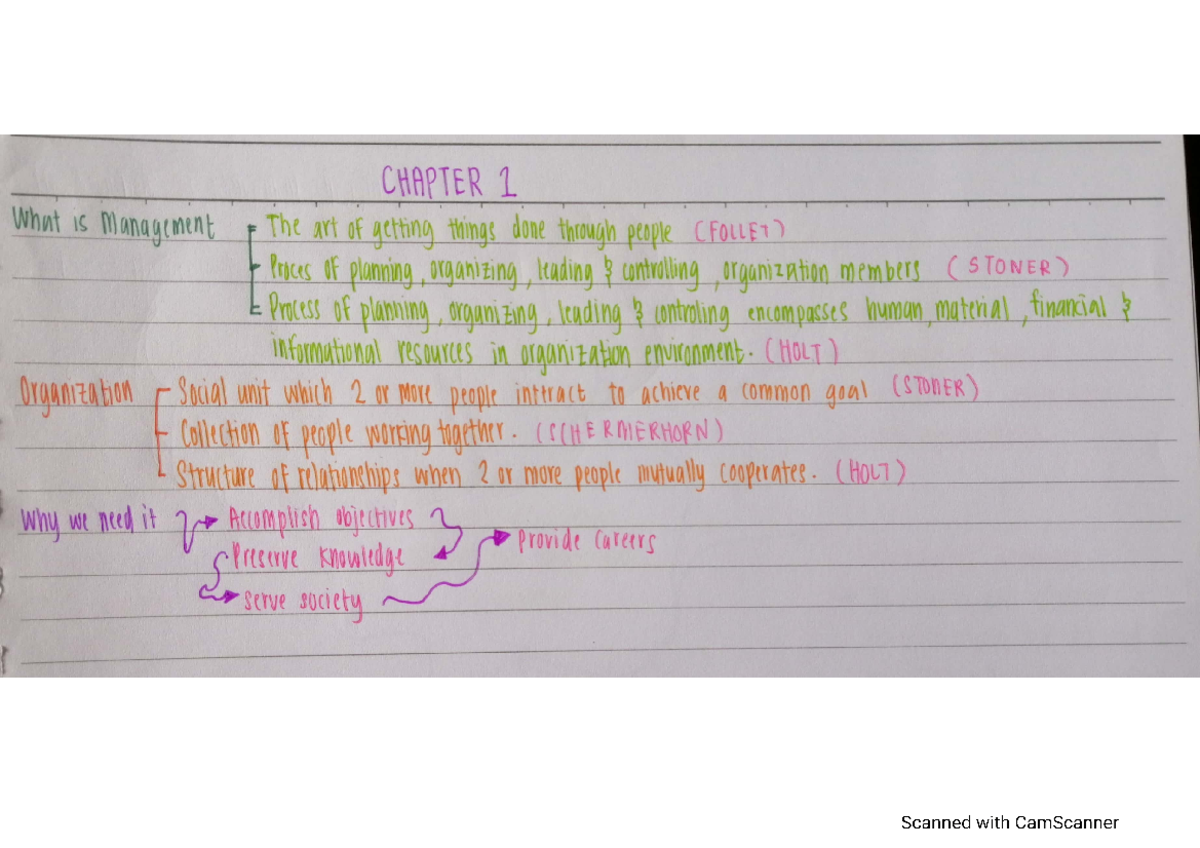 CHAPTER 1
What is Management
The art of getting things done through people (FOLLET)
Proces of planning, organizing, leading & controlling, organization members (STONER)
Process of planning, organizing, leading & controling encompasses human, material, financial &
informational resources in organization environment. (HOLT)
Organization
Social unit which 2 or more people intract to achieve a common goal (STONER)
Collection of people working together. (SCHERMERHORN)
Structure of relationships when 2 or more people mutually cooperates. (HOLT)
Why we need it
Accomplish objectives
Preserve knowledge
Serve society
Provide careers
Scanned with CamScanner